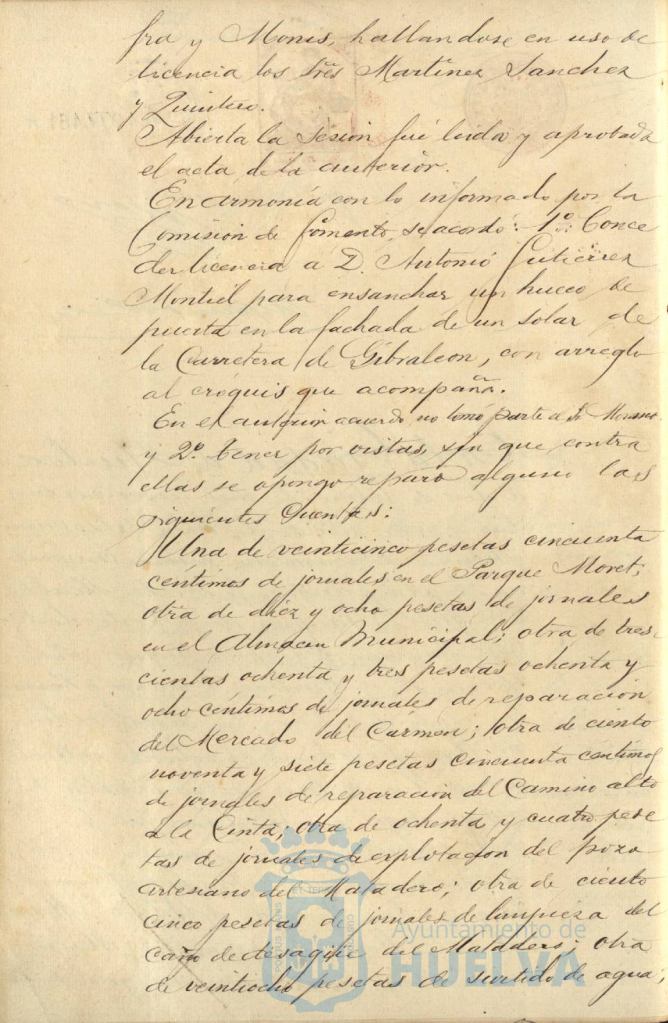 fra y Monis, hallandose en uso de
licencia los Sres Martinez Sanchez
y Quintero.
Abierta la sesion fué leida y aprobada
el acta de la anterior.
En armonia con lo informado por la
Comision de Fomento, se acordó: 1º: Conce
der licencia á D. Antonio Gutierrez
Montiel para ensanchar un hueco de
puerta en la fachada de un solar de
la Carretera de Gibraleon, con arreglo
al croquis que acompaña.
En el anterior acuerdo no tomó parte el Sr. Moreno.
y 2º. tener por vistas, sin que contra
ellas se oponga reparo alguno las
siguientes cuentas:
Una de veinticinco pesetas cincuenta
centimos de jornales en el Parque Moret;
otra de diez y ocho pesetas de jornales
en el Almacen Municipal; otra de tres
cientas ochenta y tres pesetas ochenta y
ocho centimos de jornales de reparación
del Mercado del Carmen; otra de ciento
noventa y siete pesetas cincuenta centimos
de jornales de reparación del Camino alto
a la Cinta; otra de ochenta y cuatro pese
tas de jornales de explotacion del pozo
artesiano del Matadero; otra de ciento
cinco pesetas de jornales de limpieza del
caño de desagüe del Matadero; otra
de veintiocho pesetas de surtido de agua;
Ayuntamiento de
HUELVA